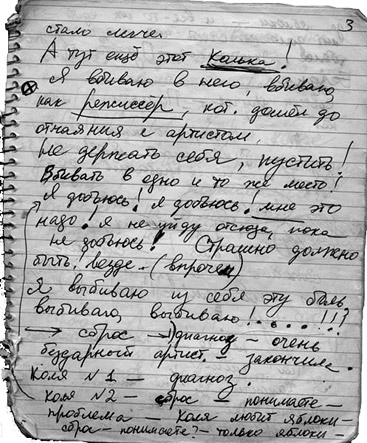 3
стало легче.
А тут ещё этот Колька!
Я вбиваю в него, вбиваю,
как режиссер, кот. дошёл до
отчаяния с артистом.
Не держать себя, пустить!
Вбивать в одно и то же место!
Я добьюсь! Я добьюсь! мне это
надо! Я не уйду отсюда, пока
не добьюсь! Страшно должно
быть везде. (впрочем)
Я выбиваю из себя эту боль,
выбиваю, выбиваю!...!!!?
→ сброс → диагноз – очень
бездарный артист. закончили.
Коля №1 — диагноз.
Коля №2 — сброс — понимаете —
проблема — Коля любит яблоки —
сброс – понимаете? – только яблоки –